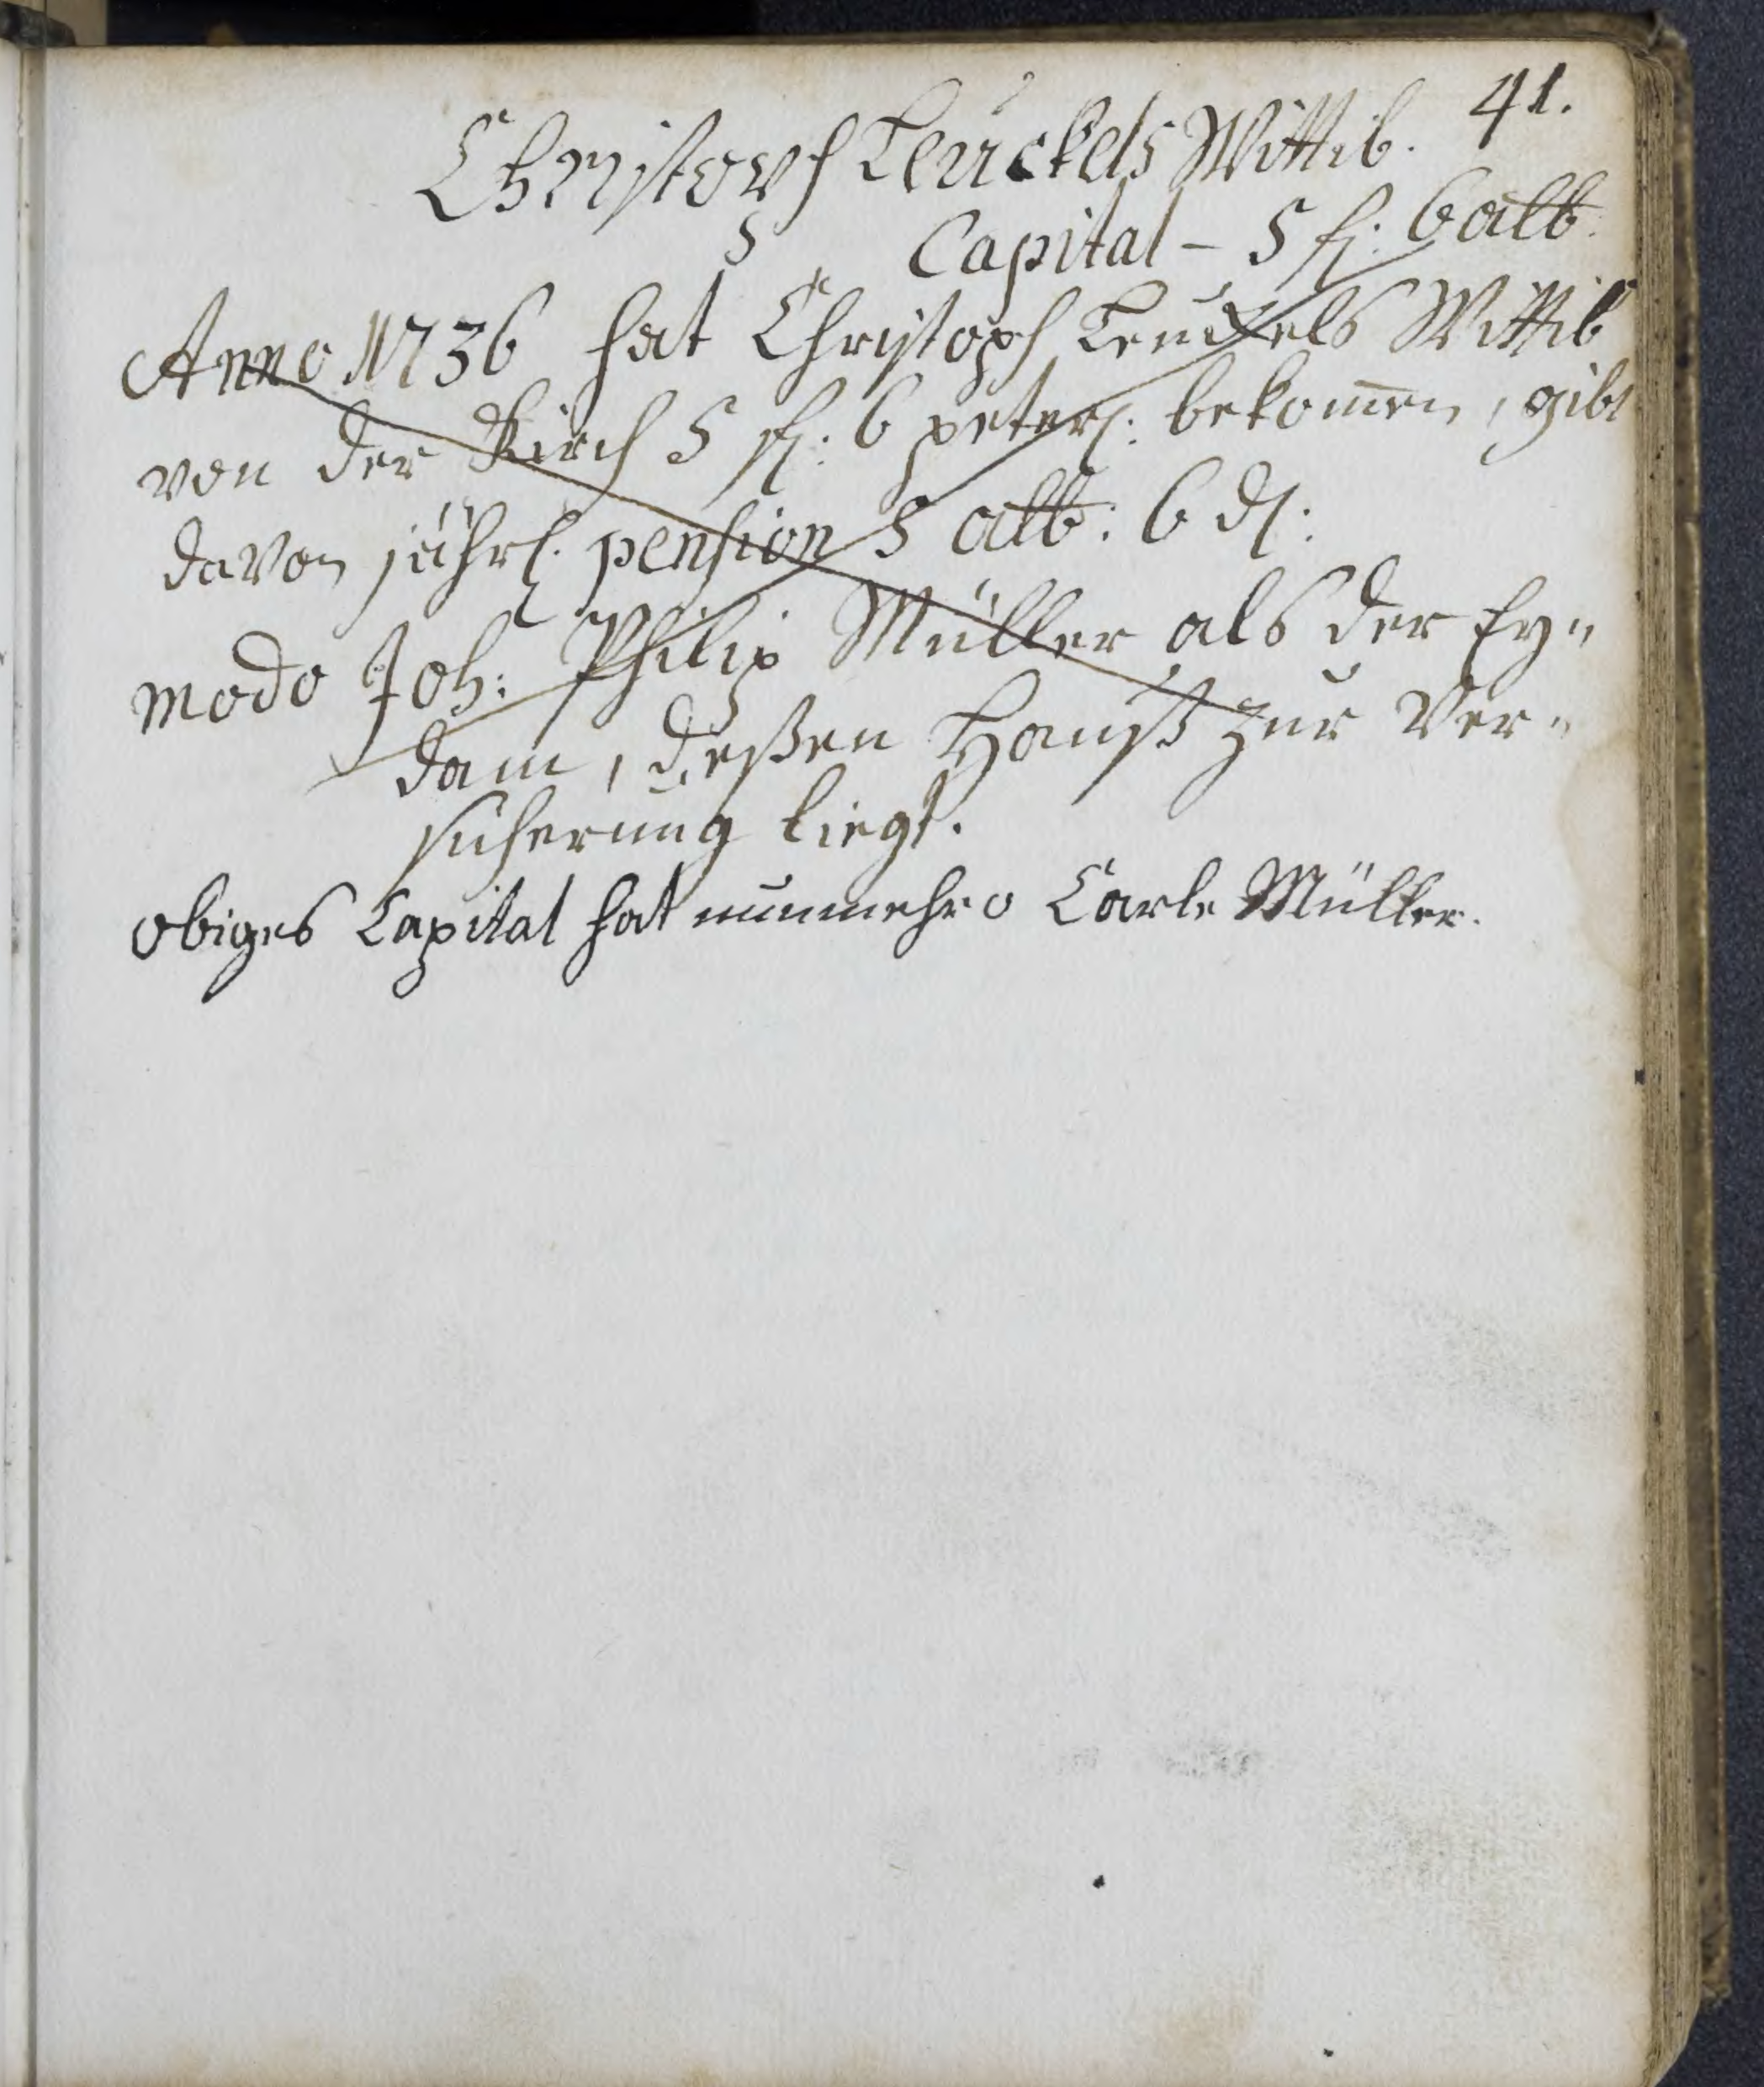 41.
Christoph Leuckels Wittib.
Capital – 5 fl: 6 alb.
Anno 1736 hat Christoph Leuckels Wittib
von der Kirch 5 fl: 6 peterl: bekom̄en, gibt
davon jährl. pension 5 alb: 6 dl:
modo Joh: Philip Müller als der Ey„
dam, deßen Hauß zur Ver„
sicherung liegt.
Obiges Capital hat nunmehro Carle Müller.